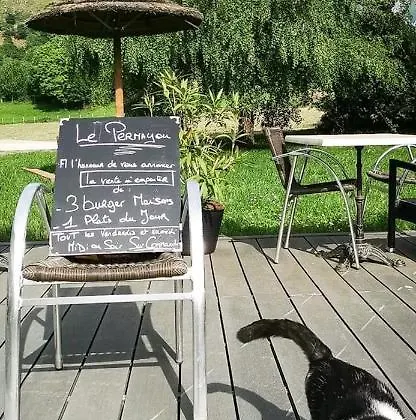 Le Permayou
A l'honneur de vous annoncer
la vente à emporter
de :
- 3 burger Maisons
- 1 Plats du Jour
TOUT les Vendredis et Samedis
Midi ou Soir Sur Commande